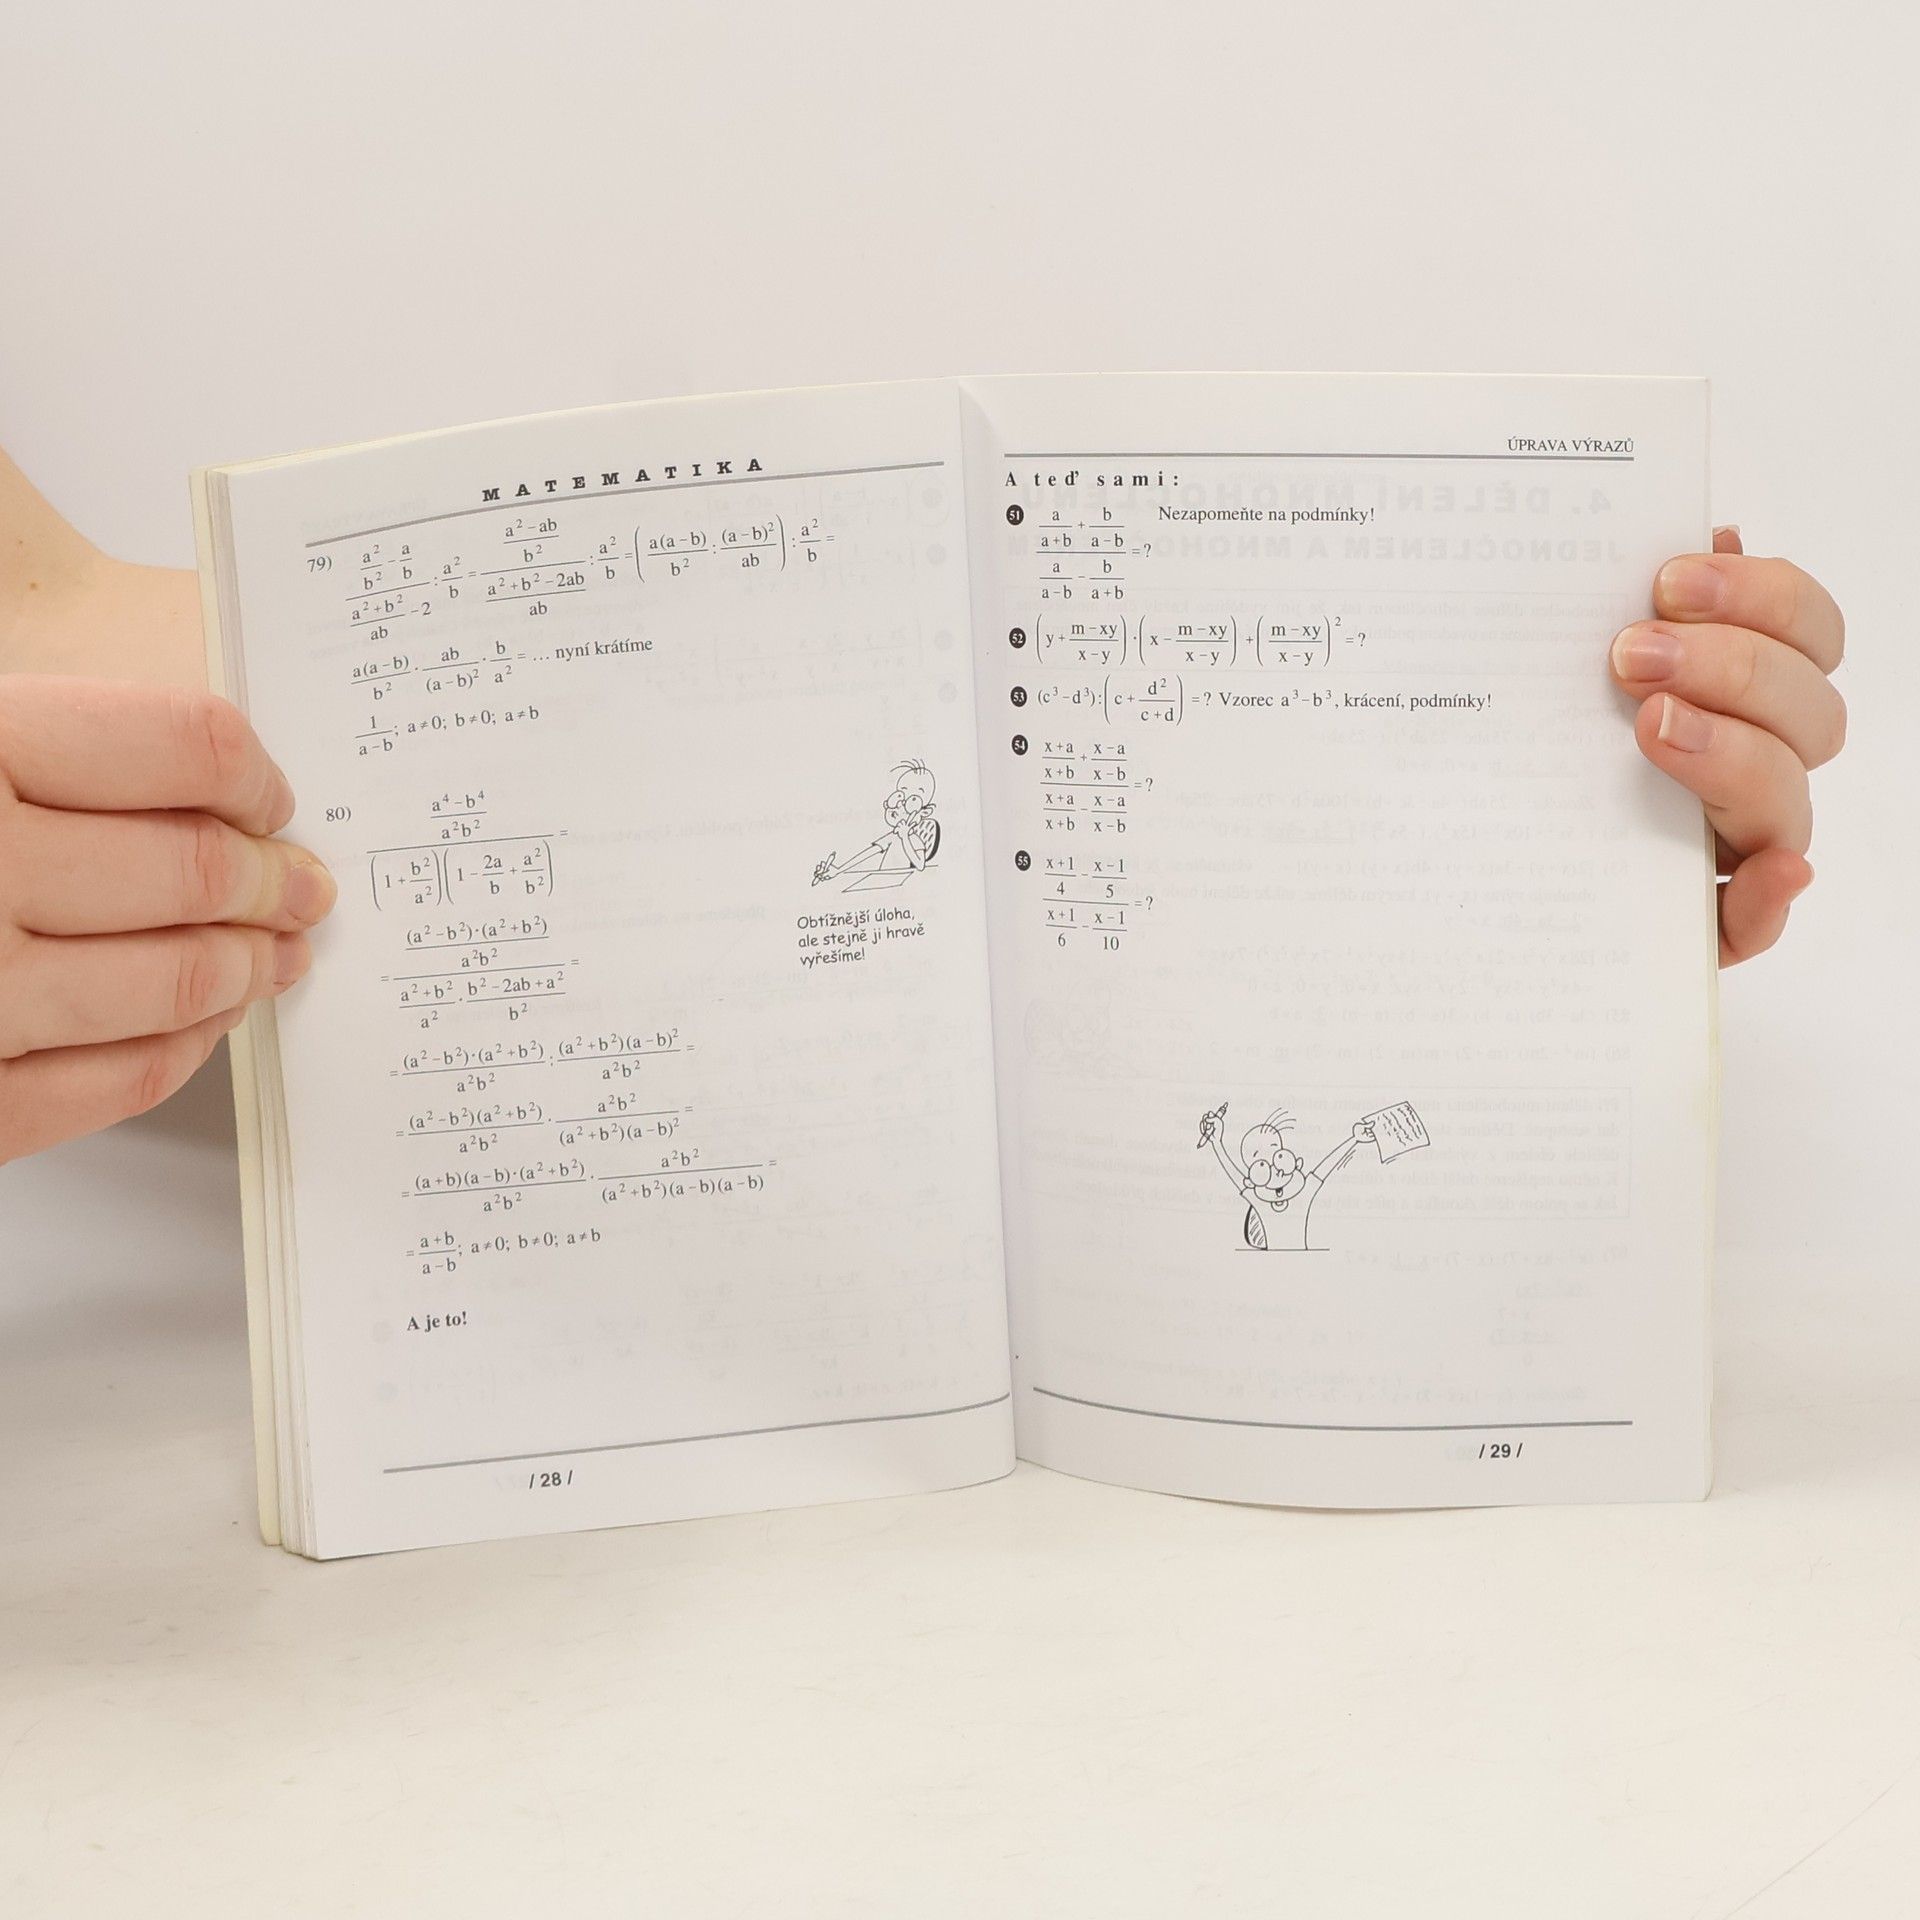 M A T E M A T I K A
79) \frac{\frac{a^2}{b^2}-\frac{a}{b}}{\frac{a^2+b^2}{ab}-2}:\frac{a^2}{b}=\frac{\frac{a^2-ab}{b^2}}{\frac{a^2+b^2-2ab}{ab}}:\frac{a^2}{b}=\left(\frac{a(a-b)}{b^2}:\frac{(a-b)^2}{ab}\right):\frac{a^2}{b}=
\frac{a(a-b)}{b^2}\cdot\frac{ab}{(a-b)^2}\cdot\frac{b}{a^2}= … nyní krátíme
\frac{1}{a-b}; a≠0; b≠0; a≠b
80) \frac{\frac{a^4-b^4}{a^2b^2}}{\left(1+\frac{b^2}{a^2}\right)\left(1-\frac{2a}{b}+\frac{a^2}{b^2}\right)}=
Obtížnější úloha,
ale stejně ji hravě
vyřešíme!
=\frac{\frac{(a^2-b^2)\cdot(a^2+b^2)}{a^2b^2}}{\frac{a^2+b^2}{a^2}\cdot\frac{b^2-2ab+a^2}{b^2}}=
=\frac{(a^2-b^2)\cdot(a^2+b^2)}{a^2b^2}:\frac{(a^2+b^2)(a-b)^2}{a^2b^2}=
=\frac{(a^2-b^2)(a^2+b^2)}{a^2b^2}\cdot\frac{a^2b^2}{(a^2+b^2)(a-b)^2}=
=\frac{(a+b)(a-b)\cdot(a^2+b^2)}{a^2b^2}\cdot\frac{a^2b^2}{(a^2+b^2)(a-b)(a-b)}=
=\frac{a+b}{a-b}; a≠0; b≠0; a≠b
A je to!
/ 28 /
ÚPRAVA VÝRAZŮ
A teď sami:
51 \frac{\frac{a}{a+b}+\frac{b}{a-b}}{\frac{a}{a-b}-\frac{b}{a+b}}=? Nezapomeňte na podmínky!
52 \left(y+\frac{m-xy}{x-y}\right)\cdot\left(x-\frac{m-xy}{x-y}\right)+\left(\frac{m-xy}{x-y}\right)^2=?
53 (c^3-d^3):\left(c+\frac{d^2}{c+d}\right)=? Vzorec a^3-b^3, krácení, podmínky!
54 \frac{\frac{x+a}{x+b}+\frac{x-a}{x-b}}{\frac{x+a}{x+b}-\frac{x-a}{x-b}}=?
55 \frac{\frac{x+1}{4}-\frac{x-1}{5}}{\frac{x+1}{6}-\frac{x-1}{10}}=?
/ 29 /